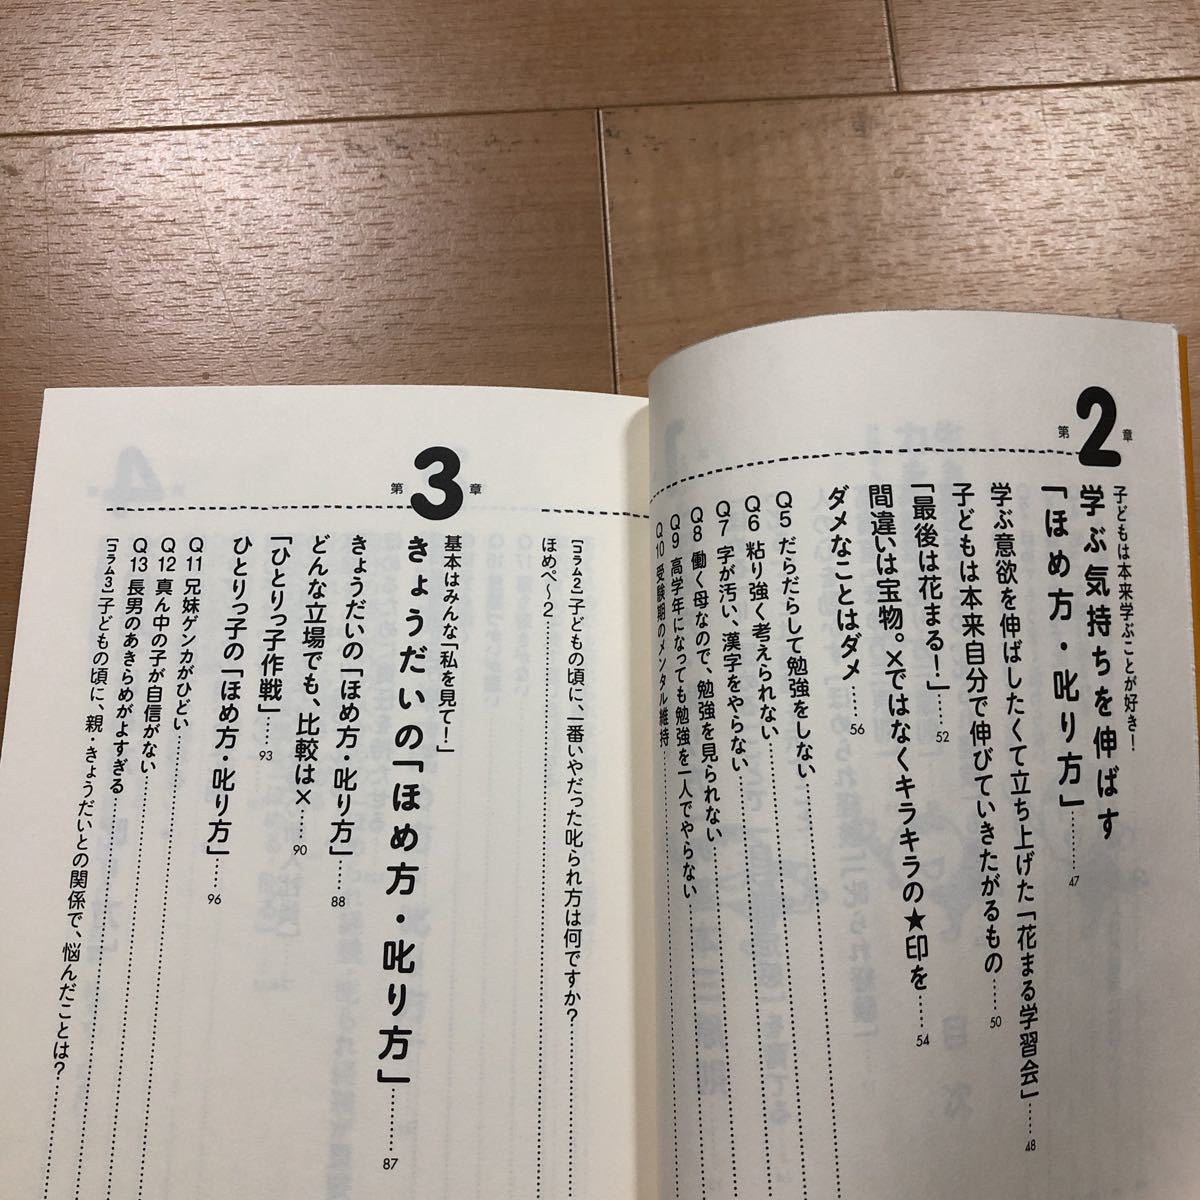 第2章
子どもは本来学ぶことが好き！
学ぶ気持ちを伸ばす
「ほめ方・叱り方」……47
学ぶ意欲を伸ばしたくて立ち上げた「花まる学習会」……48
子どもは本来自分で伸びていきたがるもの……50
「最後は花まる！」……52
間違いは宝物。×ではなくキラキラの★印を……54
ダメなことはダメ……56
Q5 だらだらして勉強をしない
Q6 粘り強く考えられない
Q7 字が汚い、漢字をやらない
Q8 働く母なので、勉強を見られない
Q9 高学年になっても勉強を一人でやらない
Q10 受験期のメンタル維持
[コラム2]子どもの頃に、一番いやだった叱られ方は何ですか？
ほめぺ〜2
第3章
基本はみんな「私を見て！」
きょうだいの「ほめ方・叱り方」……87
きょうだいの「ほめ方・叱り方」……88
どんな立場でも、比較は×……90
「ひとりっ子作戦」……93
ひとりっ子の「ほめ方・叱り方」……96
Q11 兄妹ゲンカがひどい
Q12 真ん中の子が自信がない
Q13 長男のあきらめがよすぎる
[コラム3]子どもの頃に、親・きょうだいとの関係で、悩んだことは？